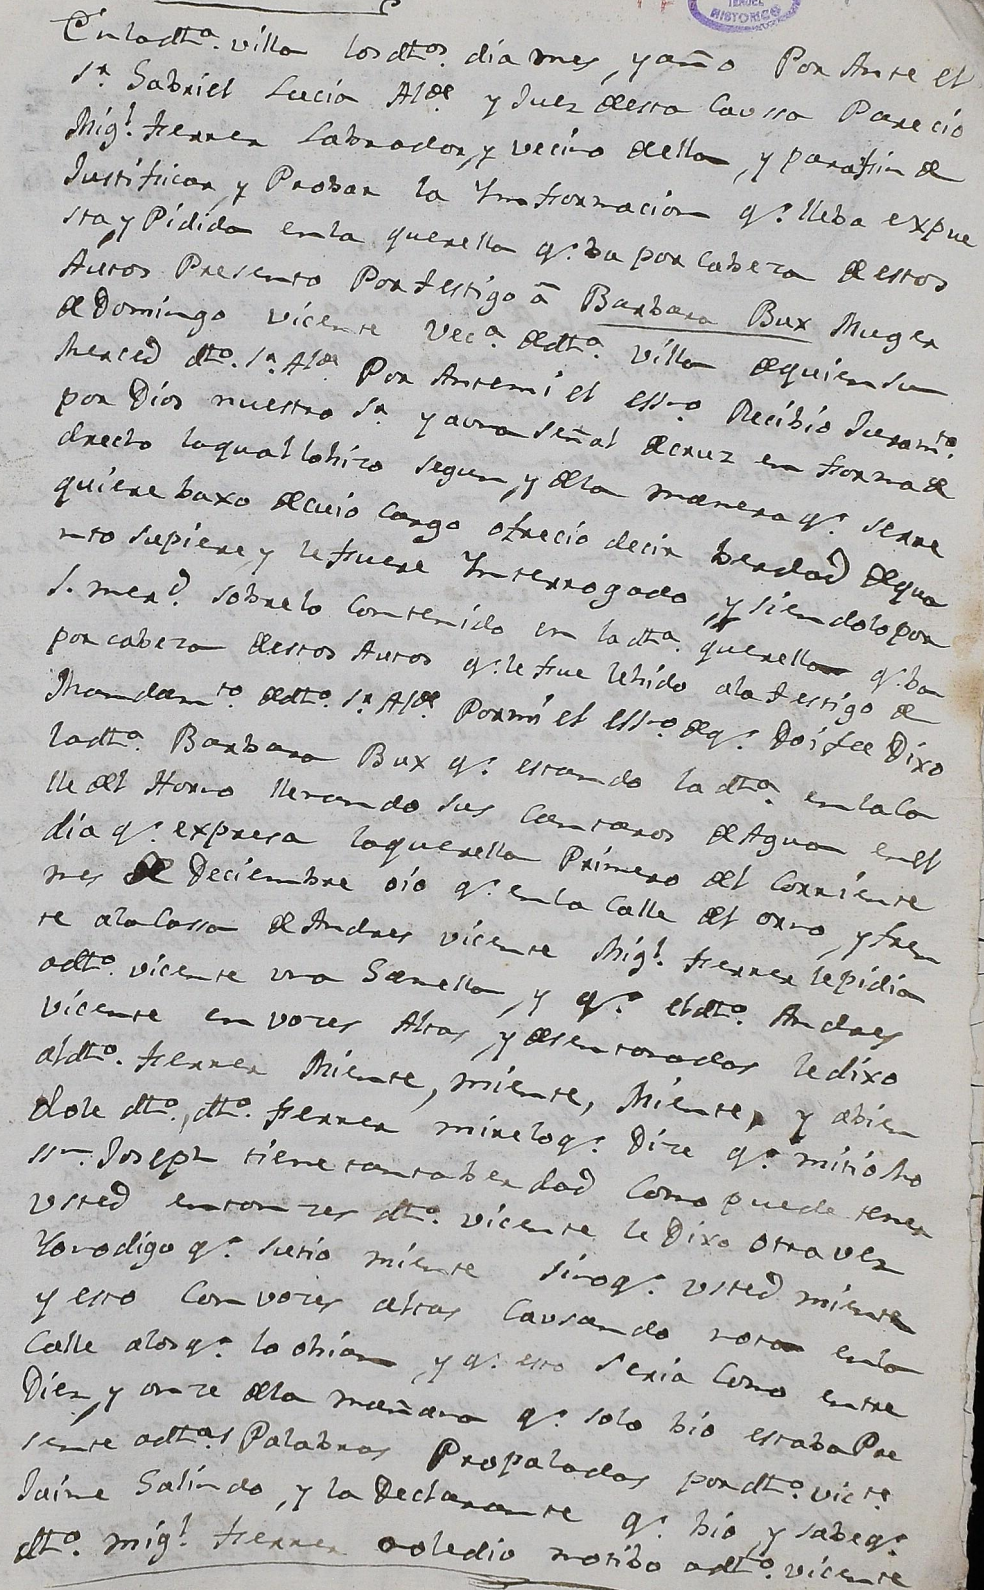 TERUEL
HISTORICO
En la dtª. villa los dtos. dia mes, y año Por Ante el
Sr. Gabriel Lucia Alde y Juez desta Caussa Parecio
Migl. Ferrer Labrador, y vecino della, y para fin de
Justificar, y Probar la Ynformacion qe. lleba expue
sta, y Pidida en la querella qe. ba por cabeza de estos
Autos Presento Por testigo â Barbara Bux Muger
de Domingo vicente vecª. de dtª. villa de quien su
Merced dto. Sr. Alde Por Antemi el essno. Recibio Juramto.
por Dios nuestro Sr. y auna señal de cruz en forma de
drecho laqual lohizo segun, y dela manera qe. serre
quiere baxo de cuio cargo ofrecio decir berdad de qua
nto supiere, y le fuere Ynterrogado, y siendolo por
S. merd. sobre lo Contenido en la dtª. querella qe. ba
por cabeza destos Autos qe. le fue lehido ala testigo de
Mandamto. de dto. Sr. Alde Pormi el essno. de qe. Doi fee Dixo
la dtª. Barbara Bux qe. estando la dtª. en la Ca
lle del Horno llenando sus Cantaros de Agua en el
dia qe. expresa la querella Primero del Corriente
mes de Deciembre oio qe. en la Calle del orno, y fren
te ala Cassa de Andres vicente Migl. Ferrer le pidia
a dto. vicente una Gamella, y qe. el dto. Andres
vicente en vozes Altas, y desentonadas le dixo
al dto. Ferrer Miente, miente, Miente, y abien
dole dto., dto. Ferrer mire lo qe. Dize qe. mi tio Mo
ssn. Joseph tiene tanta berdad Como puede tener
Usted entonzes dto. vicente le Dixo otra vez
Yo no digo qe. su tio miente sino qe. usted miente
y esto Con vozes altas Causando nota en la
Calle alos qe. lo ohian y qe. esto seria Como entre
Diez, y onze dela mañana qe. solo bio estaba Pre
sente a dtas. Palabras Propaladas por dto. victe.
Jaime Galindo, y la Declarante qe. bio, y sabe qe.
dto. migl. Ferrer no le dio motibo a dto. vicente